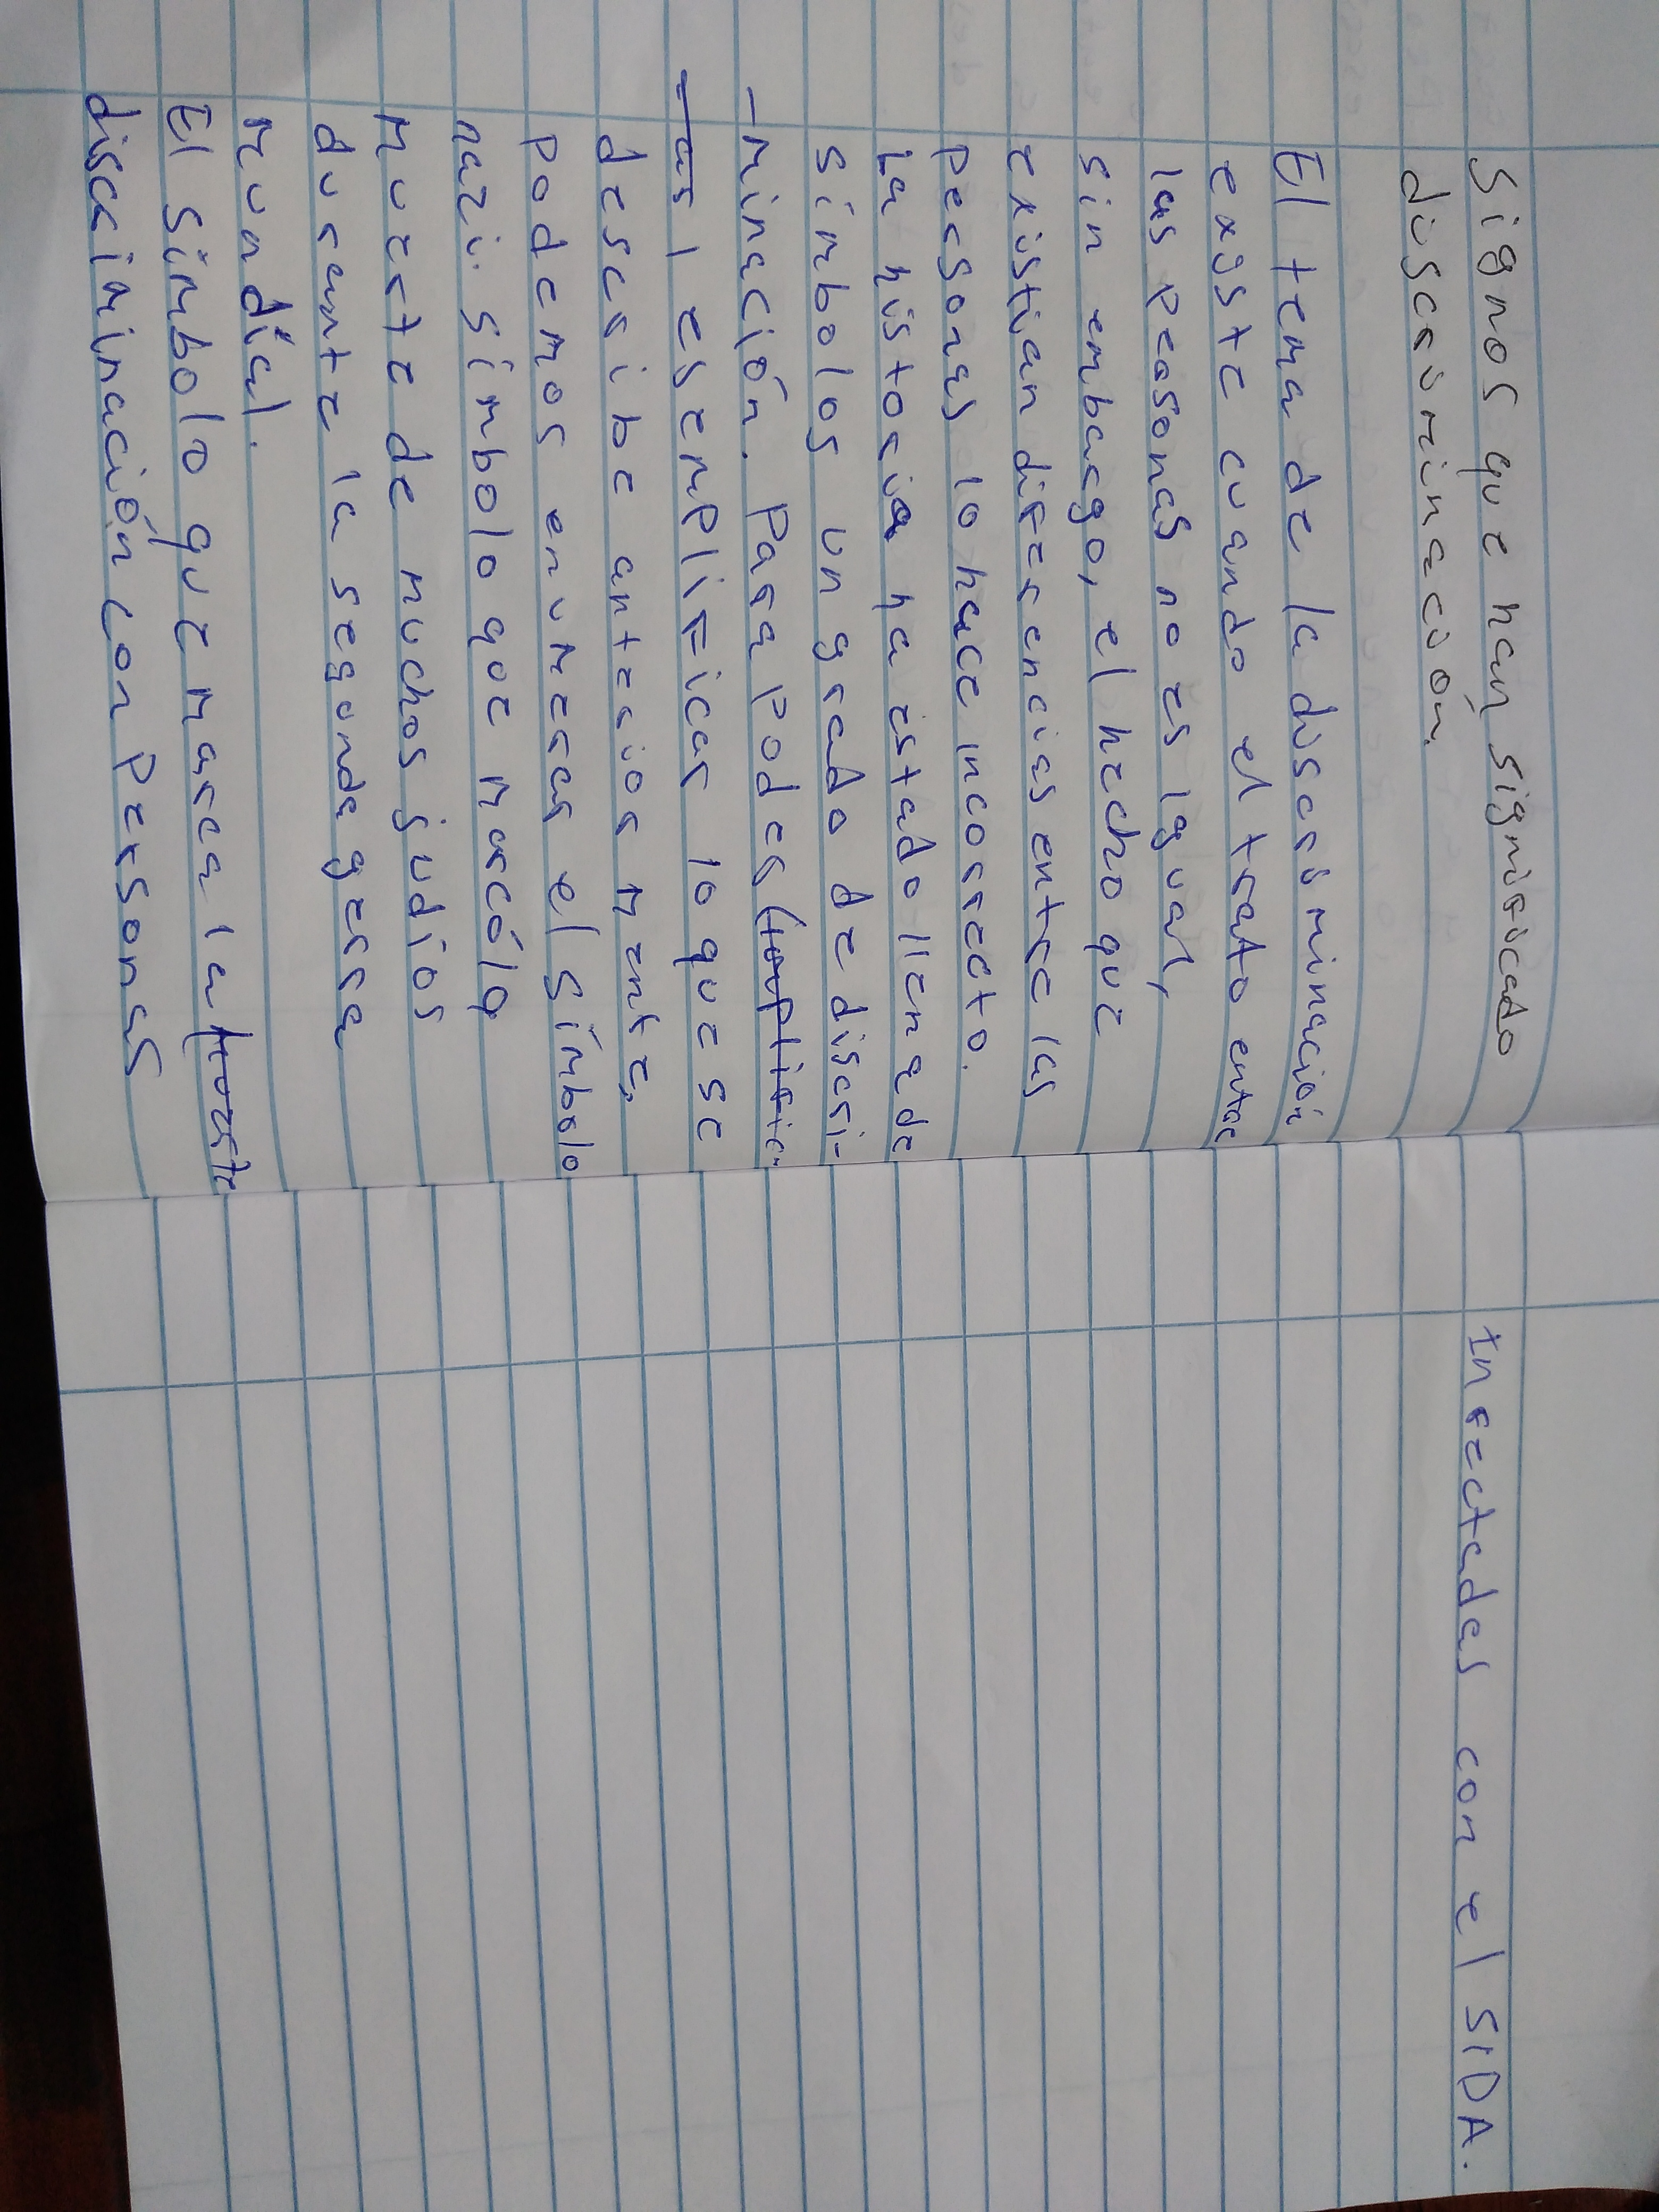 Signos que han significado
discriminación.
El tema de la discriminación
existe cuando el trato entre
las personas no es igual,
sin embargo, el hecho que
existian diferencias entre las
personas lo hace incorrecto.
La historia ha estado llena de
símbolos un grado de discri-
-minación. Para poder
ejemplificar lo que se
describe anteriormente,
podemos enumerar el símbolo
nazi. símbolo que marcó la
muerte de muchos judíos
durante la segunda gerra
mundíal.
El símbolo que marca la
discriminación con personas
Infectadas con el SIDA.